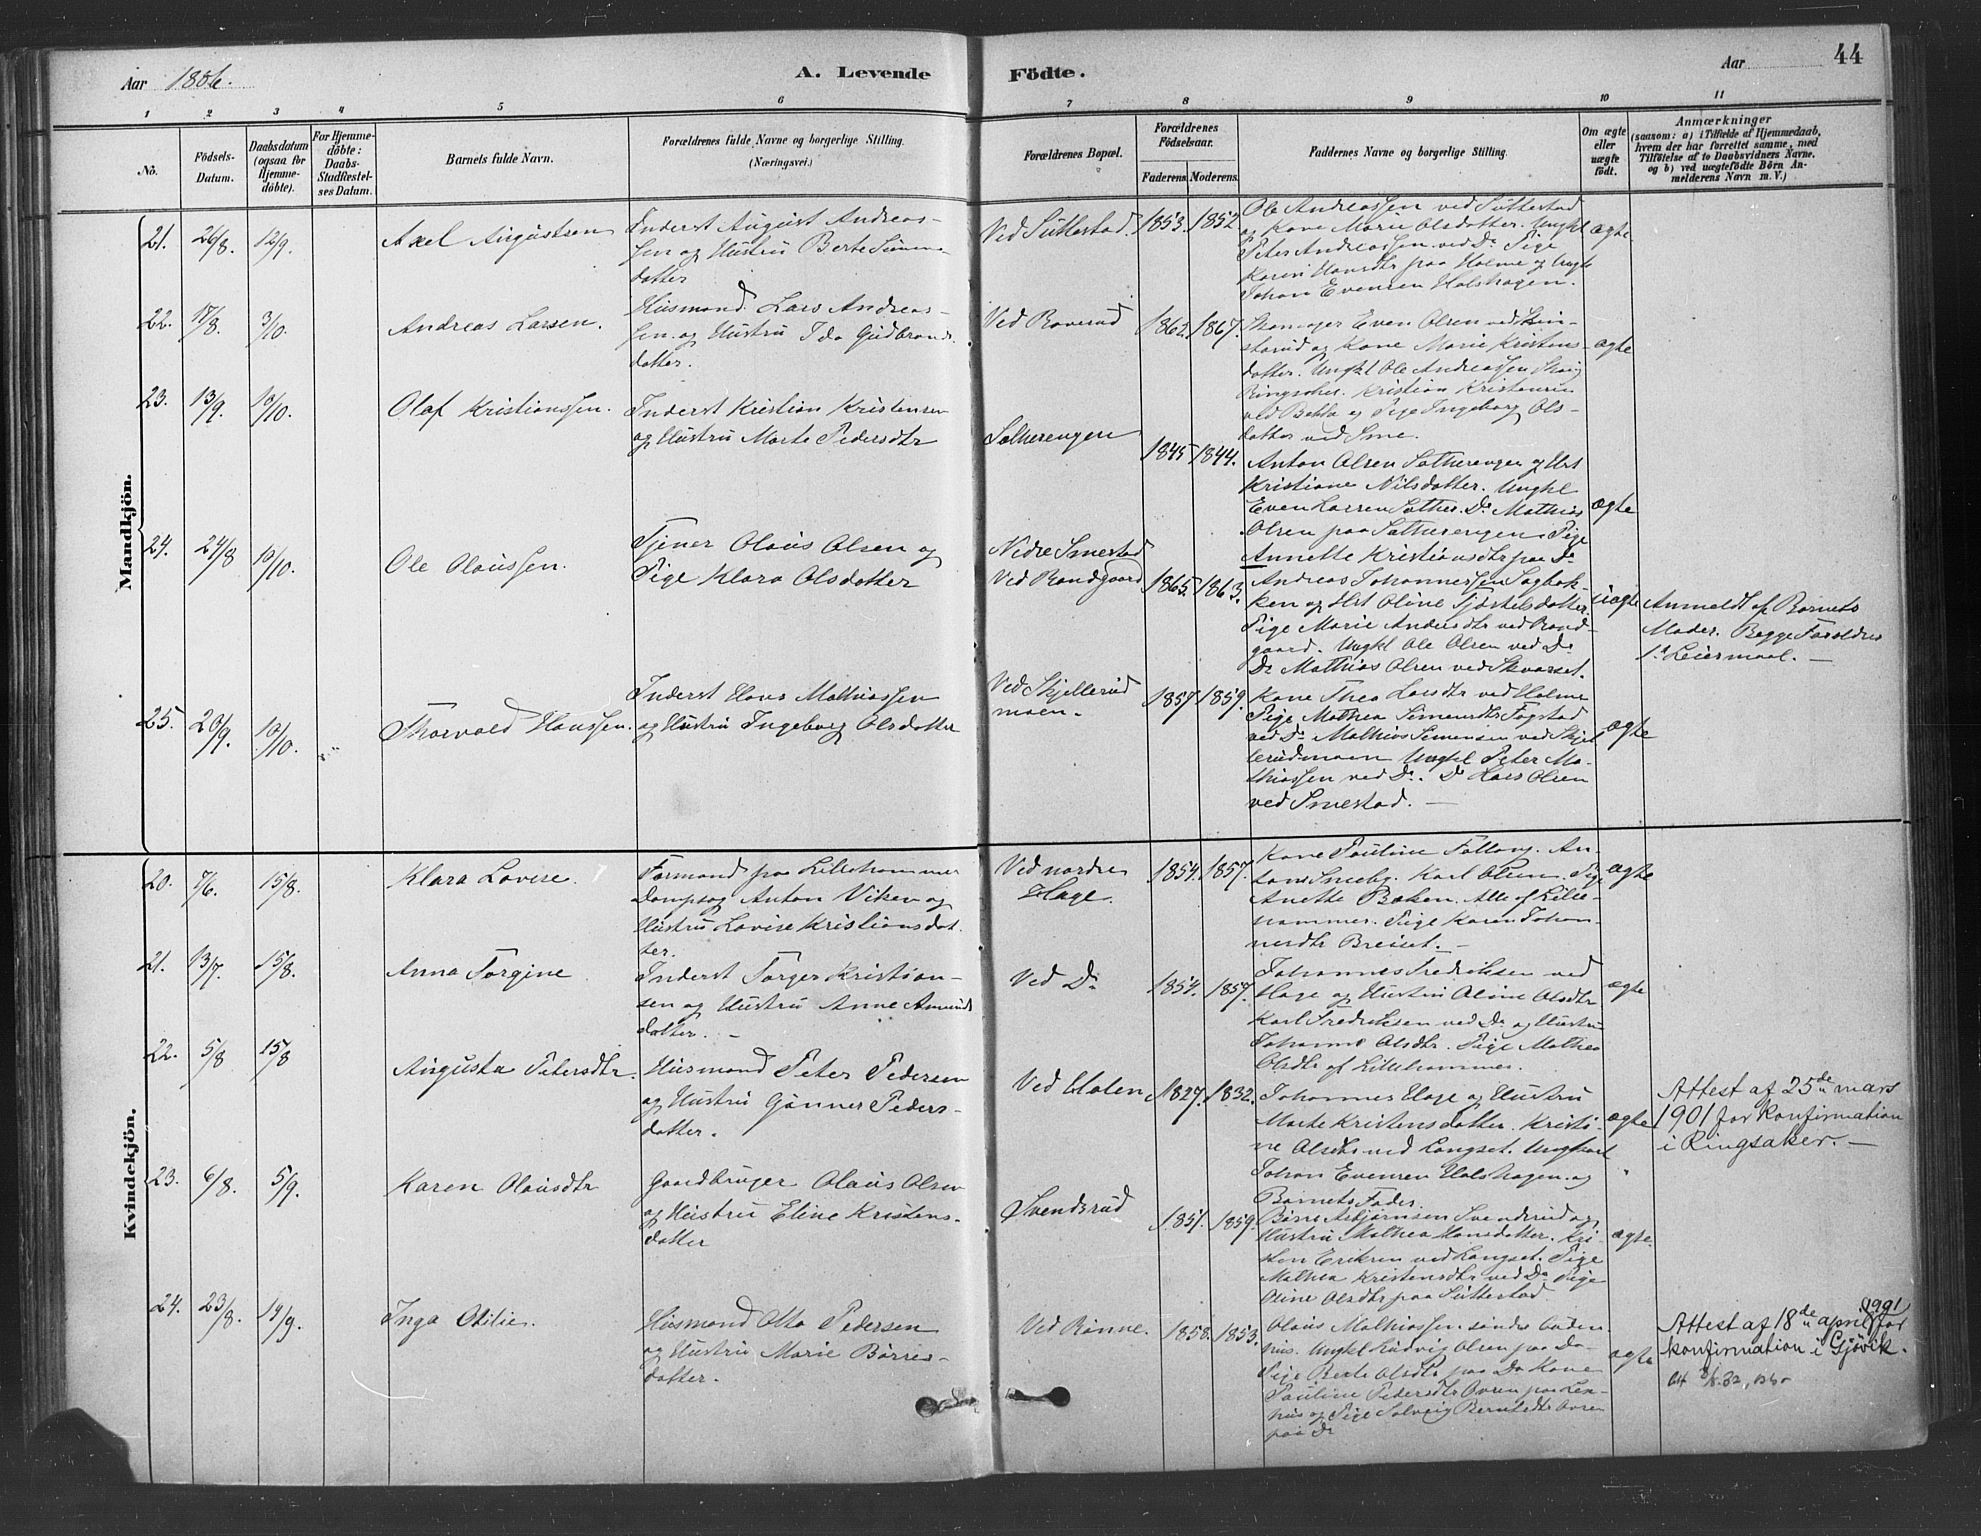 Aar 1886.
A. Levende
Födte.
Aar
44
1 2 3 4 5 6 7 8 9 10 11
No.
Födsels-
Datum.
Daabsdatum
(ogsaa for
Hjemme-
döbte).
For Hjemme-
döbte:
Daabs-
Stadfæstel-
ses Datum.
Barnets fulde Navn.
Forældrenes fulde Navne og borgerlige Stilling.
(Næringsvei.)
Forældrenes Bopæl.
Forældrenes
Födselsaar.
Faderens. Moderens.
Faddernes Navne og borgerlige Stilling.
Om ægte
eller
uægte
födt.
Anmærkninger
(saasom: a) i Tilfælde af Hjemmedaab,
hvem der har forrettet samme, med
Tilföielse af to Daabsvidners Navne,
og b) ved uægtefödte Börn An-
melderens Navn m. V.)
Mandkjön.
21. 26/8. 12/9. Axel Augustsen
Inderst August Andreas-
sen og Hustru Berte Simens-
datter
Ved Sutterstad. 1853. 1852
Ole Andreassen ved Sutterstad
og Kone Marie Olsdatter. Ungkl
Peter Andreassen ved Do Pige
Karin Hansdtr paa Holme og Ungk
Johan Evensen Holshagen.
ægte
22. 17/8. 3/10. Andreas Larsen.
Husmand Lars Andreas-
sen og Hustru Ida Gudbrands-
datter.
Ved Roverud 1862. 1867.
Even Olsen ved
og Kone Marie Kristens-
datter. Ungkl Ole Andreassen
Ringsaker. Kristian Kristensen
og Pige Ingeborg Ols-
datter ved Sme.
ægte
23. 13/9. 10/10. Olaf Kristianssen.
Inderst Kristian Kristensen
og Hustru Marte Pedersdtr
Sætherengen 1845 1844.
Anton Olsen Sætherengen og Hst
Kristiane Nilsdatter. Ungkl
Even Larsen Sæther. Do Mathias
Olsen paa Sætherengen. Pige
Annette Kristiansdtr paa Do
ægte
24. 24/8 10/10. Ole Olaussen.
Tjener Olaus Olsen og
Pige Klara Olsdatter
Nedre Smestad
Ved Rondgaard 1865. 1863.
Andreas Johannessen Sagbak-
ken og Hst Oline Tjostelsdatter.
Pige Marie Andersdtr ved Rond-
gaard. Ungkl Ole Olsen ved Do
Do Mathias Olsen ved
uægte
Anmeldt af Barnets
Moder. Begge Forældres
1ste Leiermaal. —
25. 20/9. 10/10. Thorvald Hanssen.
Inderst Hans Mathiassen
og Hustru Ingeborg Olsdatter
Ved Skjellerud
moen. 1857 1859.
Kone Thea Larsdtr ved Holme
Pige Mathea Simensdtr Fogstad
ved Do Mathias Simensen ved Skjel
lerudmoen Ungkl Peter Ma-
thiassen ved Do. Do Lars Olsen
ved Smestad. —
ægte
Kvindekjön.
20. 7/6. 15/8. Klara Lovise.
Formand paa Lillehammer
Dampsag Anton Viken og
Hustru Lovise Kristiansdat-
ter.
Ved nordre
Hage. 1854. 1857.
Kone Pauline An-
ton Smeby. Karl Olsen. Pige
Anette Bakken. Alle af Lille-
hammer. Pige Karen Johan-
nesdtr Breiset. —
ægte
21. 13/7. 15/8. Anna Torgine
Inderst Torger Kristian-
sen og Hustru Anne Amunds
datter. —
Ved Do 1854. 1857.
Johannes Fredriksen ved
Hage og Hustru Oline Olsdtr
Karl Fredriksen ved Do og Hustru
Johanne Olsdtr. Pige Mathea
Olsdtr af Lillehammer.
ægte
22. 5/8 15/8 Augusta Petersdtr.
Husmand Peter Pedersen
og Hustru Gunner Peders-
datter.
Ved Holen 1827. 1832.
Johannes Hage og Hustru
Marte Kristensdatter. Kristi-
ne Olsdtr ved Langset. Ungkarl
Johan Evensen Holshagen og
Barnets Fader.
ægte
Attest af 25de mars
1901 for konfirmation
i Ringsaker. —
23. 6/8. 5/9. Karen Olausdtr
Gaardbruger Olaus Olsen
og Hustru Eline Kristens-
datter
Svendsrud 1851. 1859.
Børre Asbjørnsen Svendsrud og
Hustru Mathea Hansdatter. Kri-
sten Eriksen ved Langset. Pige
Mathea Kristensdtr ved Do Pige
Oline Olsdtr paa Sutterstad.
ægte.
24. 23/8. 19/9. Inga Otilie.
Husmand Otto Pedersen
og Hustru Marie Børres-
datter.
Ved Rønne. 1858. 1853.
Olaus Mathiassen søndre
Ungkl Ludvig Olsen paa Do
Pige Berte Olsdtr paa Do Kone
Pauline Pedersdtr Ovren paa
og Pige Solveig Berntsdtr Ovren
paa Do
ægte
Attest af 18de april 1901 for
konfirmation i Gjövik.